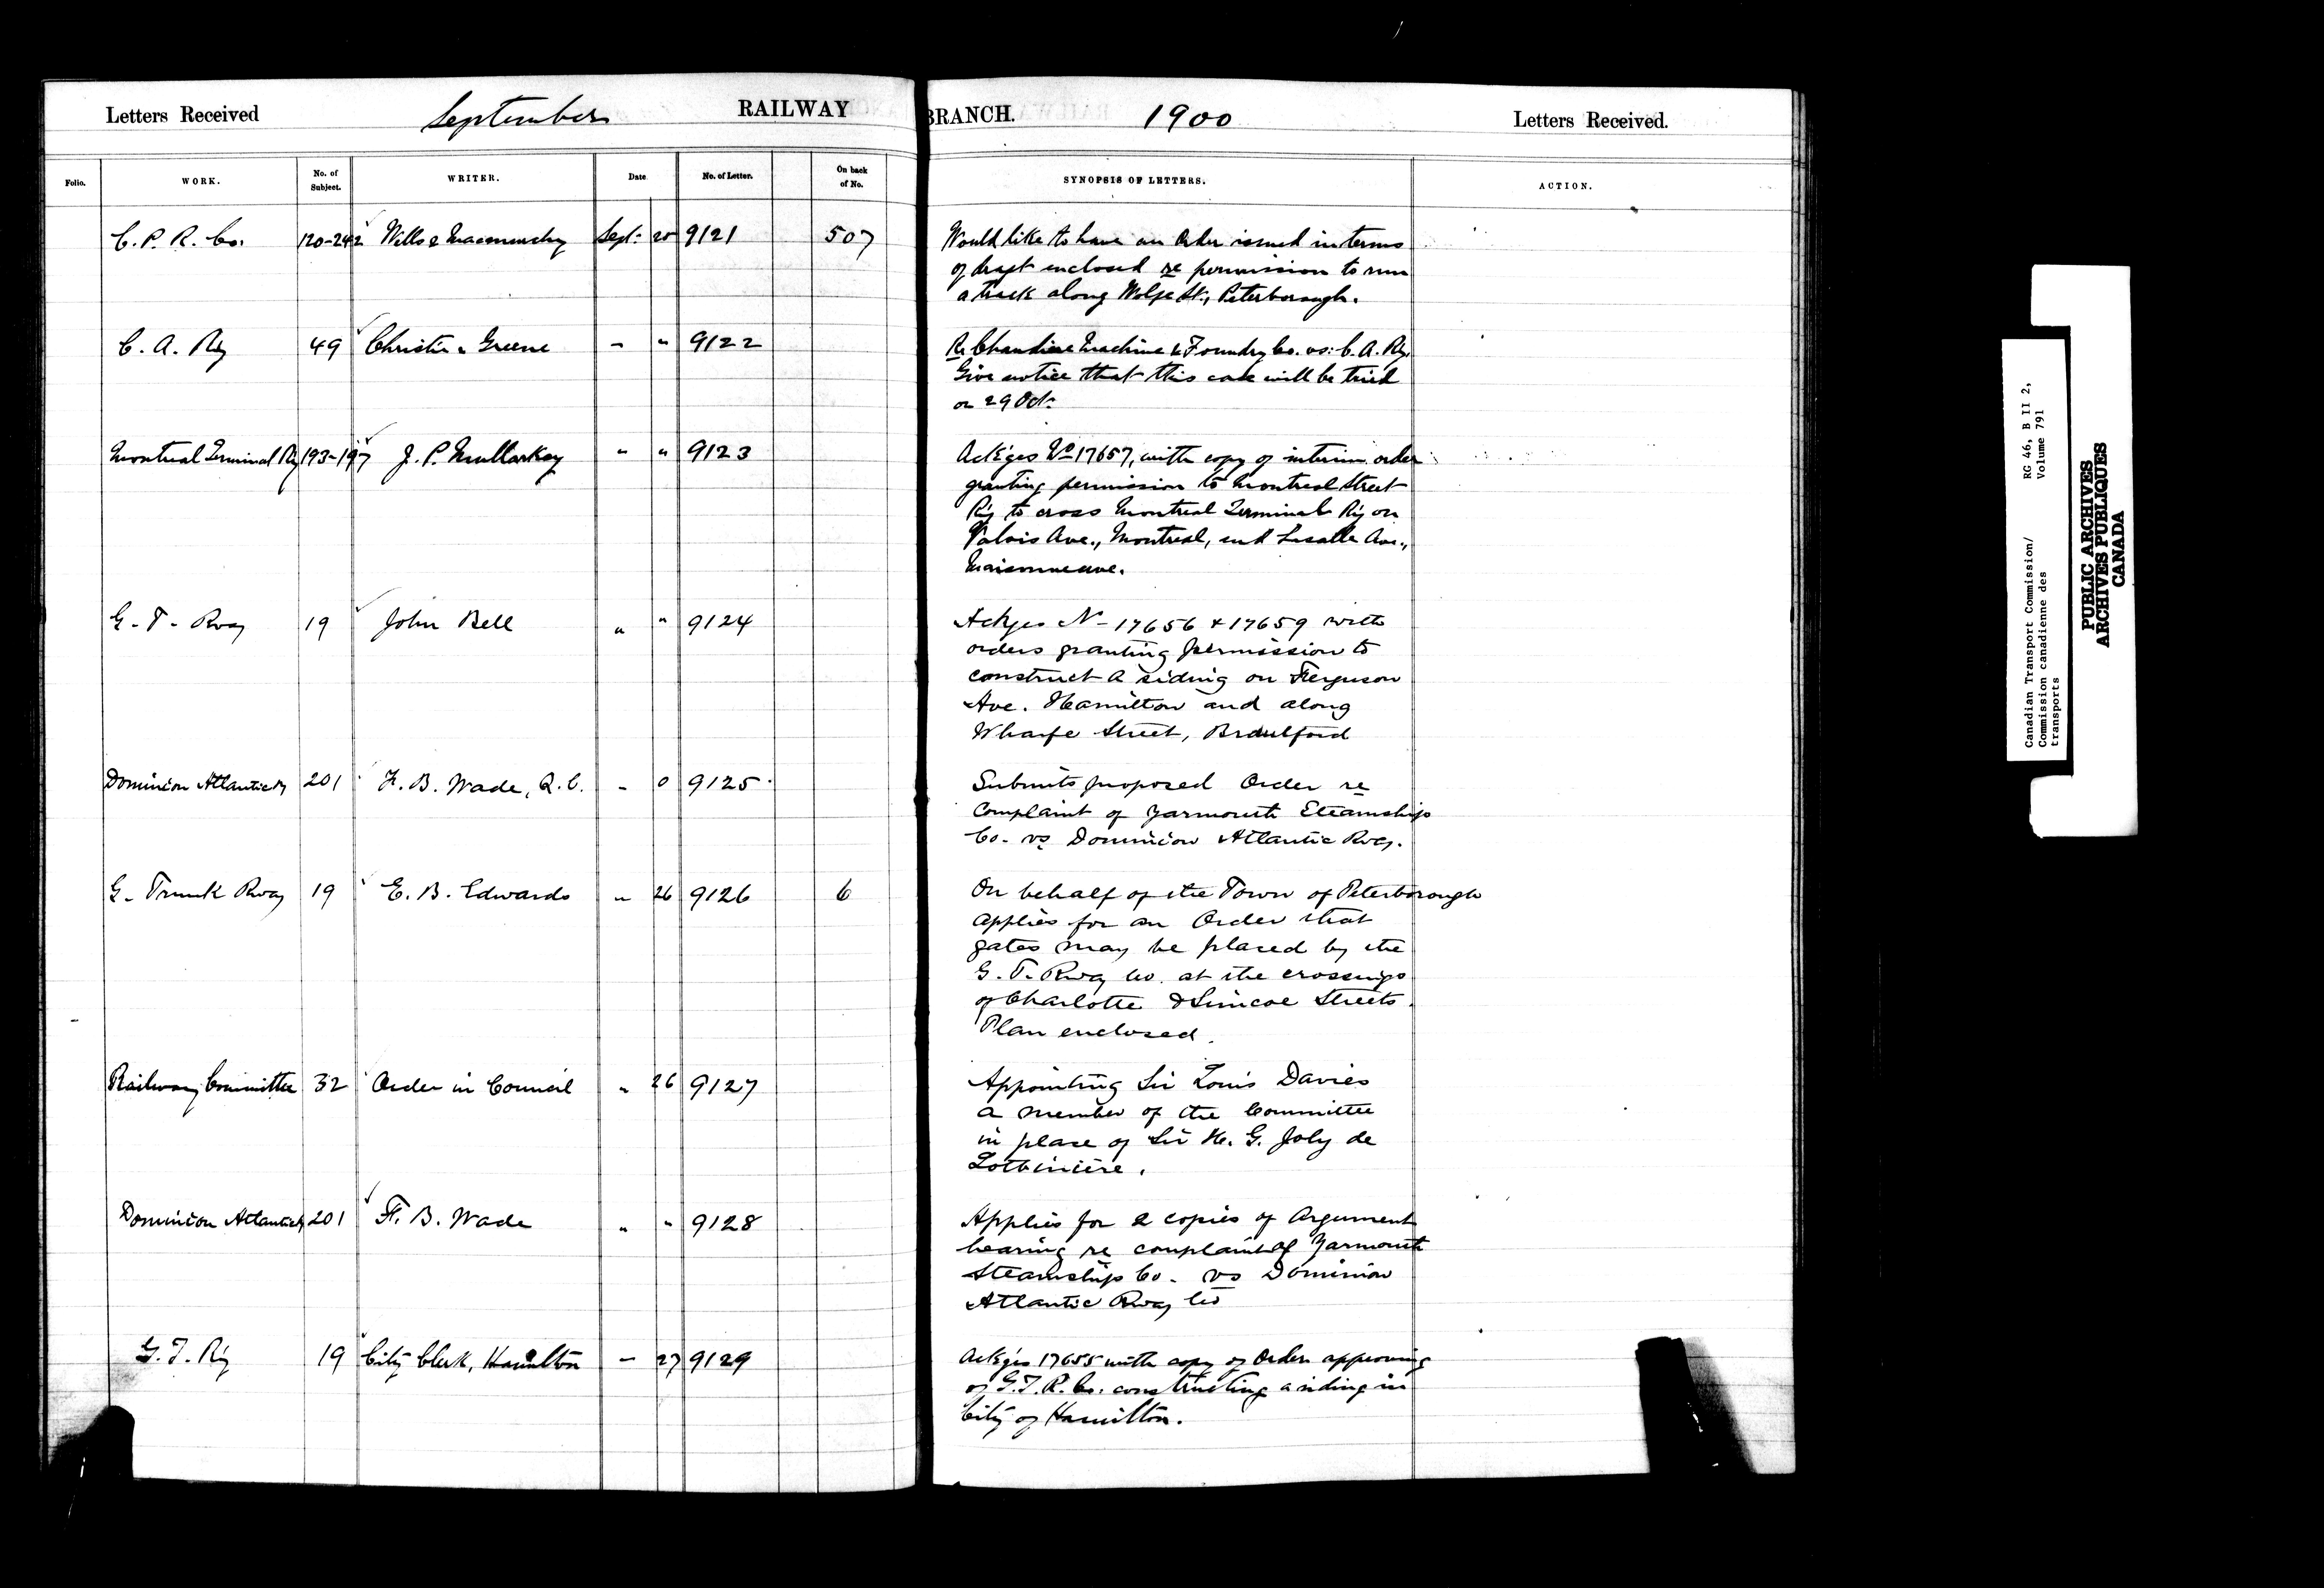 Letters Received September RAILWAY BRANCH. 1900 Letters Received.
Folio. WORK. No. of Subject. WRITER. Date No. of Letter. On back of No. SYNOPSIS OF LETTERS. ACTION.
C. P. R. Co. 120-242 Wills & Sept. 9121 507 Would like to have an Order issued in terms
of draft enclosed re permission to run
a track along Wolfe St., Peterborough.
C. A. Ry 49 Christie & Greene " " 9122 Re Chaudiere Machine & Foundry Co. vs: C. A. Ry.
Give notice that this case will be tried
on 29 Oct.
Montreal Terminal Ry 193-197 J. P. Mullarkey " " 9123 Ack'ges No 17657, with copy of interim order
granting permission to Montreal Street
Ry to cross Montreal Terminal Ry on
Valois Ave., Montreal, and Lasalle Ave.,
Maisonneuve.
G. T. Rway 19 John Bell " " 9124 Ackges N- 17656 & 17659 with
orders granting permission to
construct a siding on Ferguson
Ave. Hamilton and along
Wharfe Street, Brantford
Dominion Atlantic Ry 201 F. B. Wade, Q.C. " 9125 Submits proposed Order re
Complaint of Yarmouth Steamship
Co. vs Dominion Atlantic Rway.
G. Trunk Rway 19 E. B. Edwards " 26 9126 6 On behalf of the Town of Peterborough
applies for an Order that
gates may be placed by the
G. T. Rway Co. at the crossings
of Charlotte & Simcoe Streets.
Plan enclosed.
Railway Committee 32 Order in Council " 26 9127 Appointing Sir Louis Davies
a member of the Committee
in place of Sir H. G. Joly de
Lotbiniere.
Dominion Atlantic Ry 201 F. B. Wade " " 9128 Applies for 2 copies of Argument
hearing re complaint of Yarmouth
Steamship Co. vs Dominion
Atlantic Rway Co
G. T. Ry 19 City Clerk, Hamilton " 27 9129 Ack'ges 17655 with copy of Order approving
of G. T. R. Co. constructing a siding in
City of Hamilton.
Canadian Transport Commission/
Commission canadienne des
transports
RG 46, B II 2,
Volume 791
PUBLIC ARCHIVES
ARCHIVES PUBLIQUES
CANADA